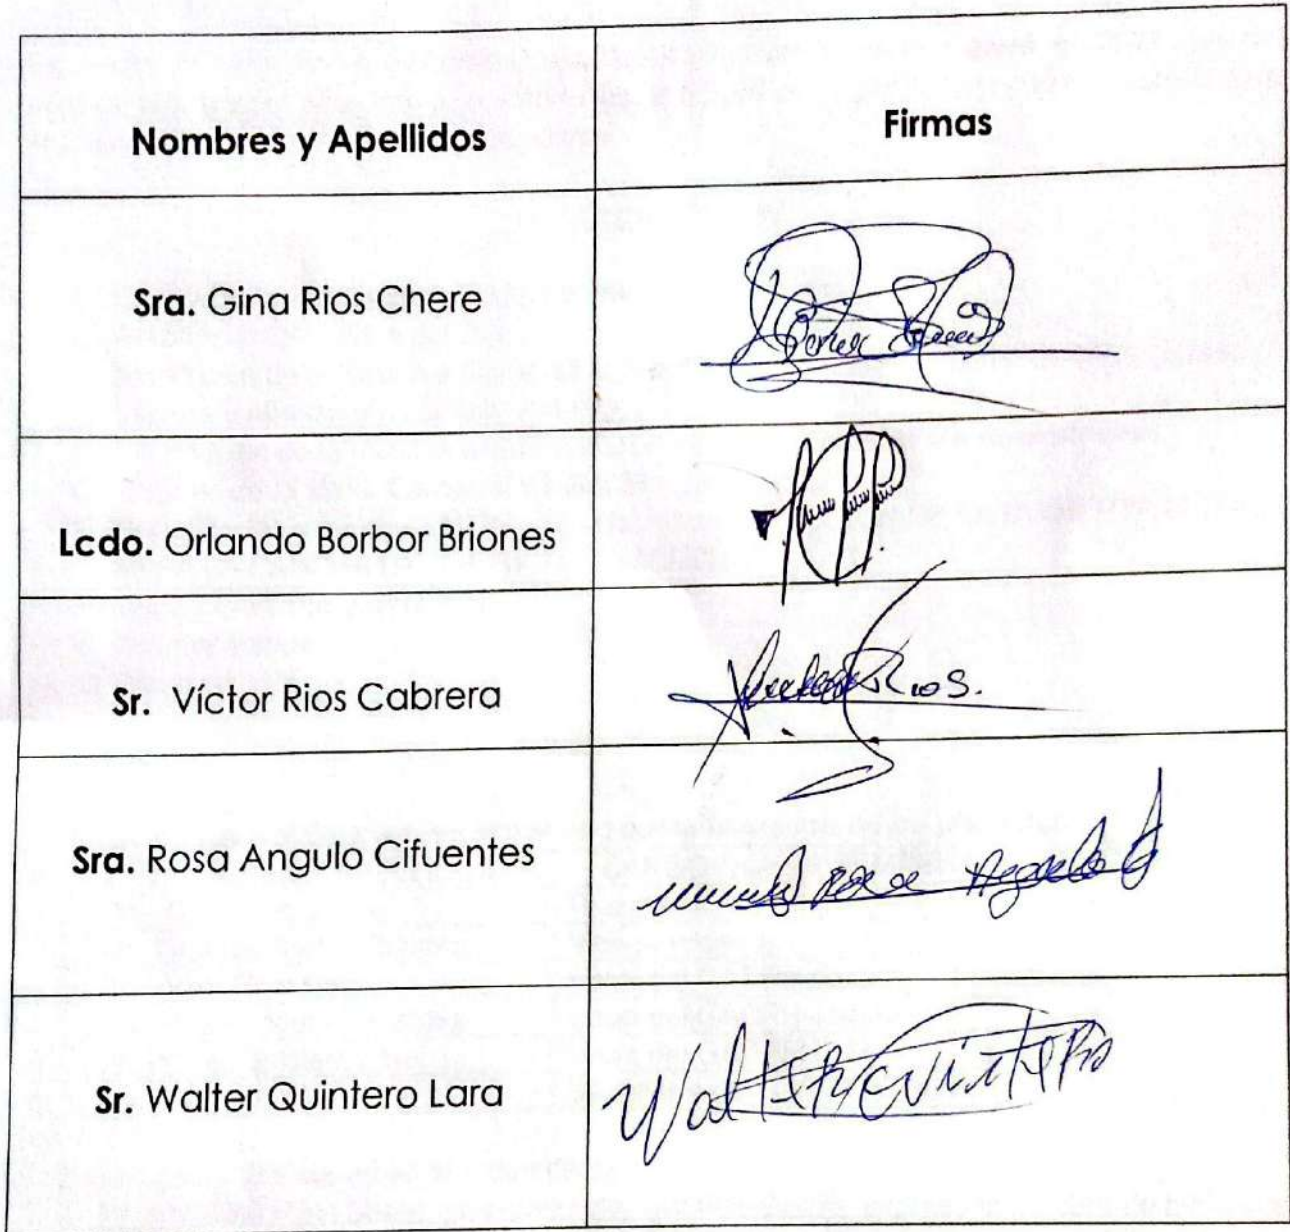 Nombres y Apellidos
Firmas
Sra. Gina Rios Chere
Lcdo. Orlando Borbor Briones
Sr. Víctor Rios Cabrera
Rios.
Sra. Rosa Angulo Cifuentes
Rosa Angulo
Sr. Walter Quintero Lara
Walter Quintero